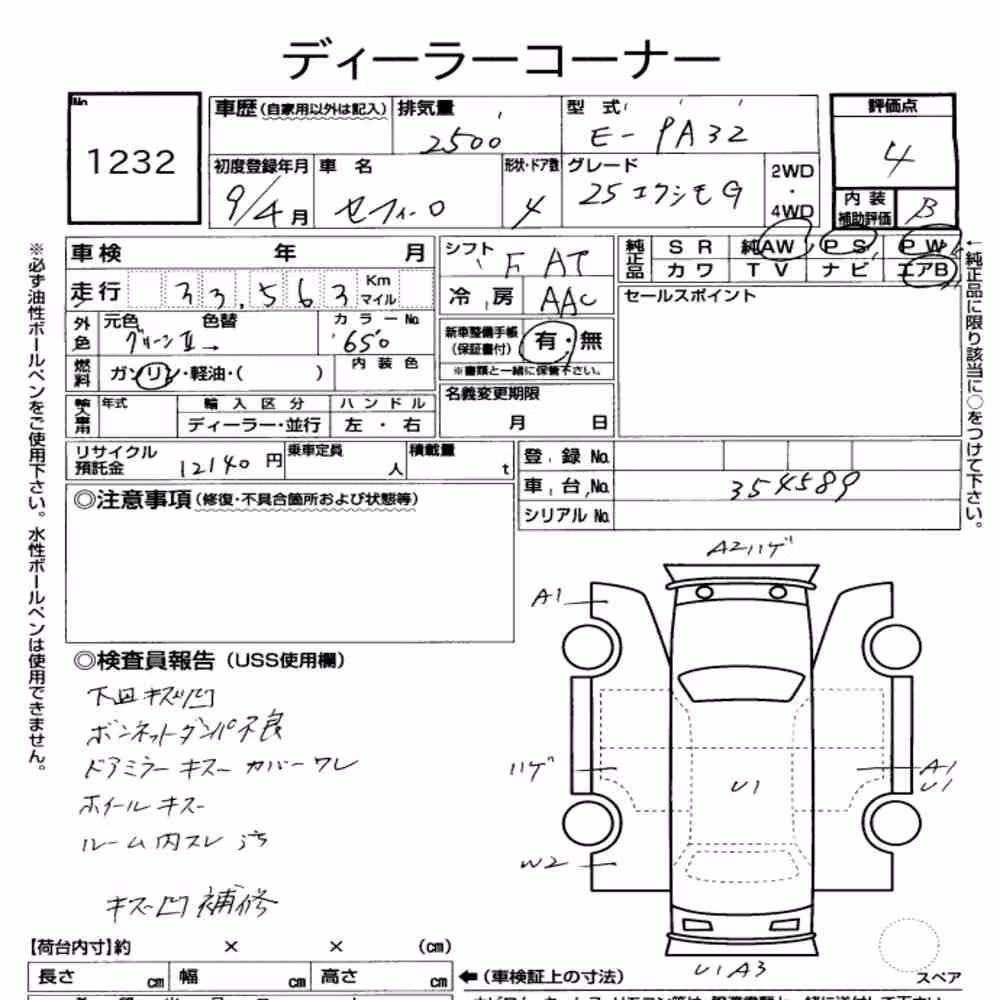 ディーラーコーナー
No. 1232
車歴 (自家用以外は記入) 排気量 2500 型式 E-PA32
初度登録年月 9/4月 車名 セフィーロ 形状・ドア数 4 グレード 25エクシモG 2WD・4WD
評価点 4
内装補助評価 B
車検 年 月
走行 33,563 Km マイル
外色 元色 グリーンII→ 色替 カラーNo. 650
燃料 ガソリン・軽油・( ) 内装色
輸入車用 年式 輸入区分 ディーラー・並行 ハンドル 左・右
シフト F AT
冷房 AAC
新車整備手帳 (保証書付) 有・無
※書類と一緒に保管下さい。
名義変更期限 月 日
純正品 SR 純AW PS PW
カワ TV ナビ エアB
セールスポイント
リサイクル預託金 12140円 乗車定員 人 積載量 t
登録No.
車台No. 354589
シリアルNo.
◎注意事項 (修復・不具合箇所および状態等)
◎検査員報告 (USS使用欄)
下回キズ凹
ボンネットダンパ不良
ドアミラーキズー カバーワレ
ホイールキズー
ルーム内スレ 汚
キズ凹補修
A2ハゲ
A1
ハゲ
W2
U1
A1
U1
U1A3
スペア
【荷台内寸】約 × × (cm)
長さ cm 幅 cm 高さ cm
←(車検証上の寸法)
※必ず油性ボールペンをご使用下さい。水性ボールペンは使用できません。
←純正品に限り該当に○をつけて下さい。